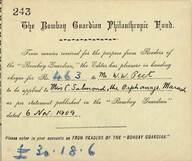 243
The Bombay Guardian Philanthropic Fund.
From monies received for the purpose from Readers of the
"Bombay Guardian," the Editor has pleasure in handing
cheque for Rs 463 to Mr. W. W. Peet
to be applied to Miss C. Salmond, the Orphanage, Marash
as per statement published in the "Bombay Guardian"
dated 6 Nov 1909
Please enter in your accounts as FROM READERS OF THE "BOMBAY GUARDIAN."
£ 30.18.6